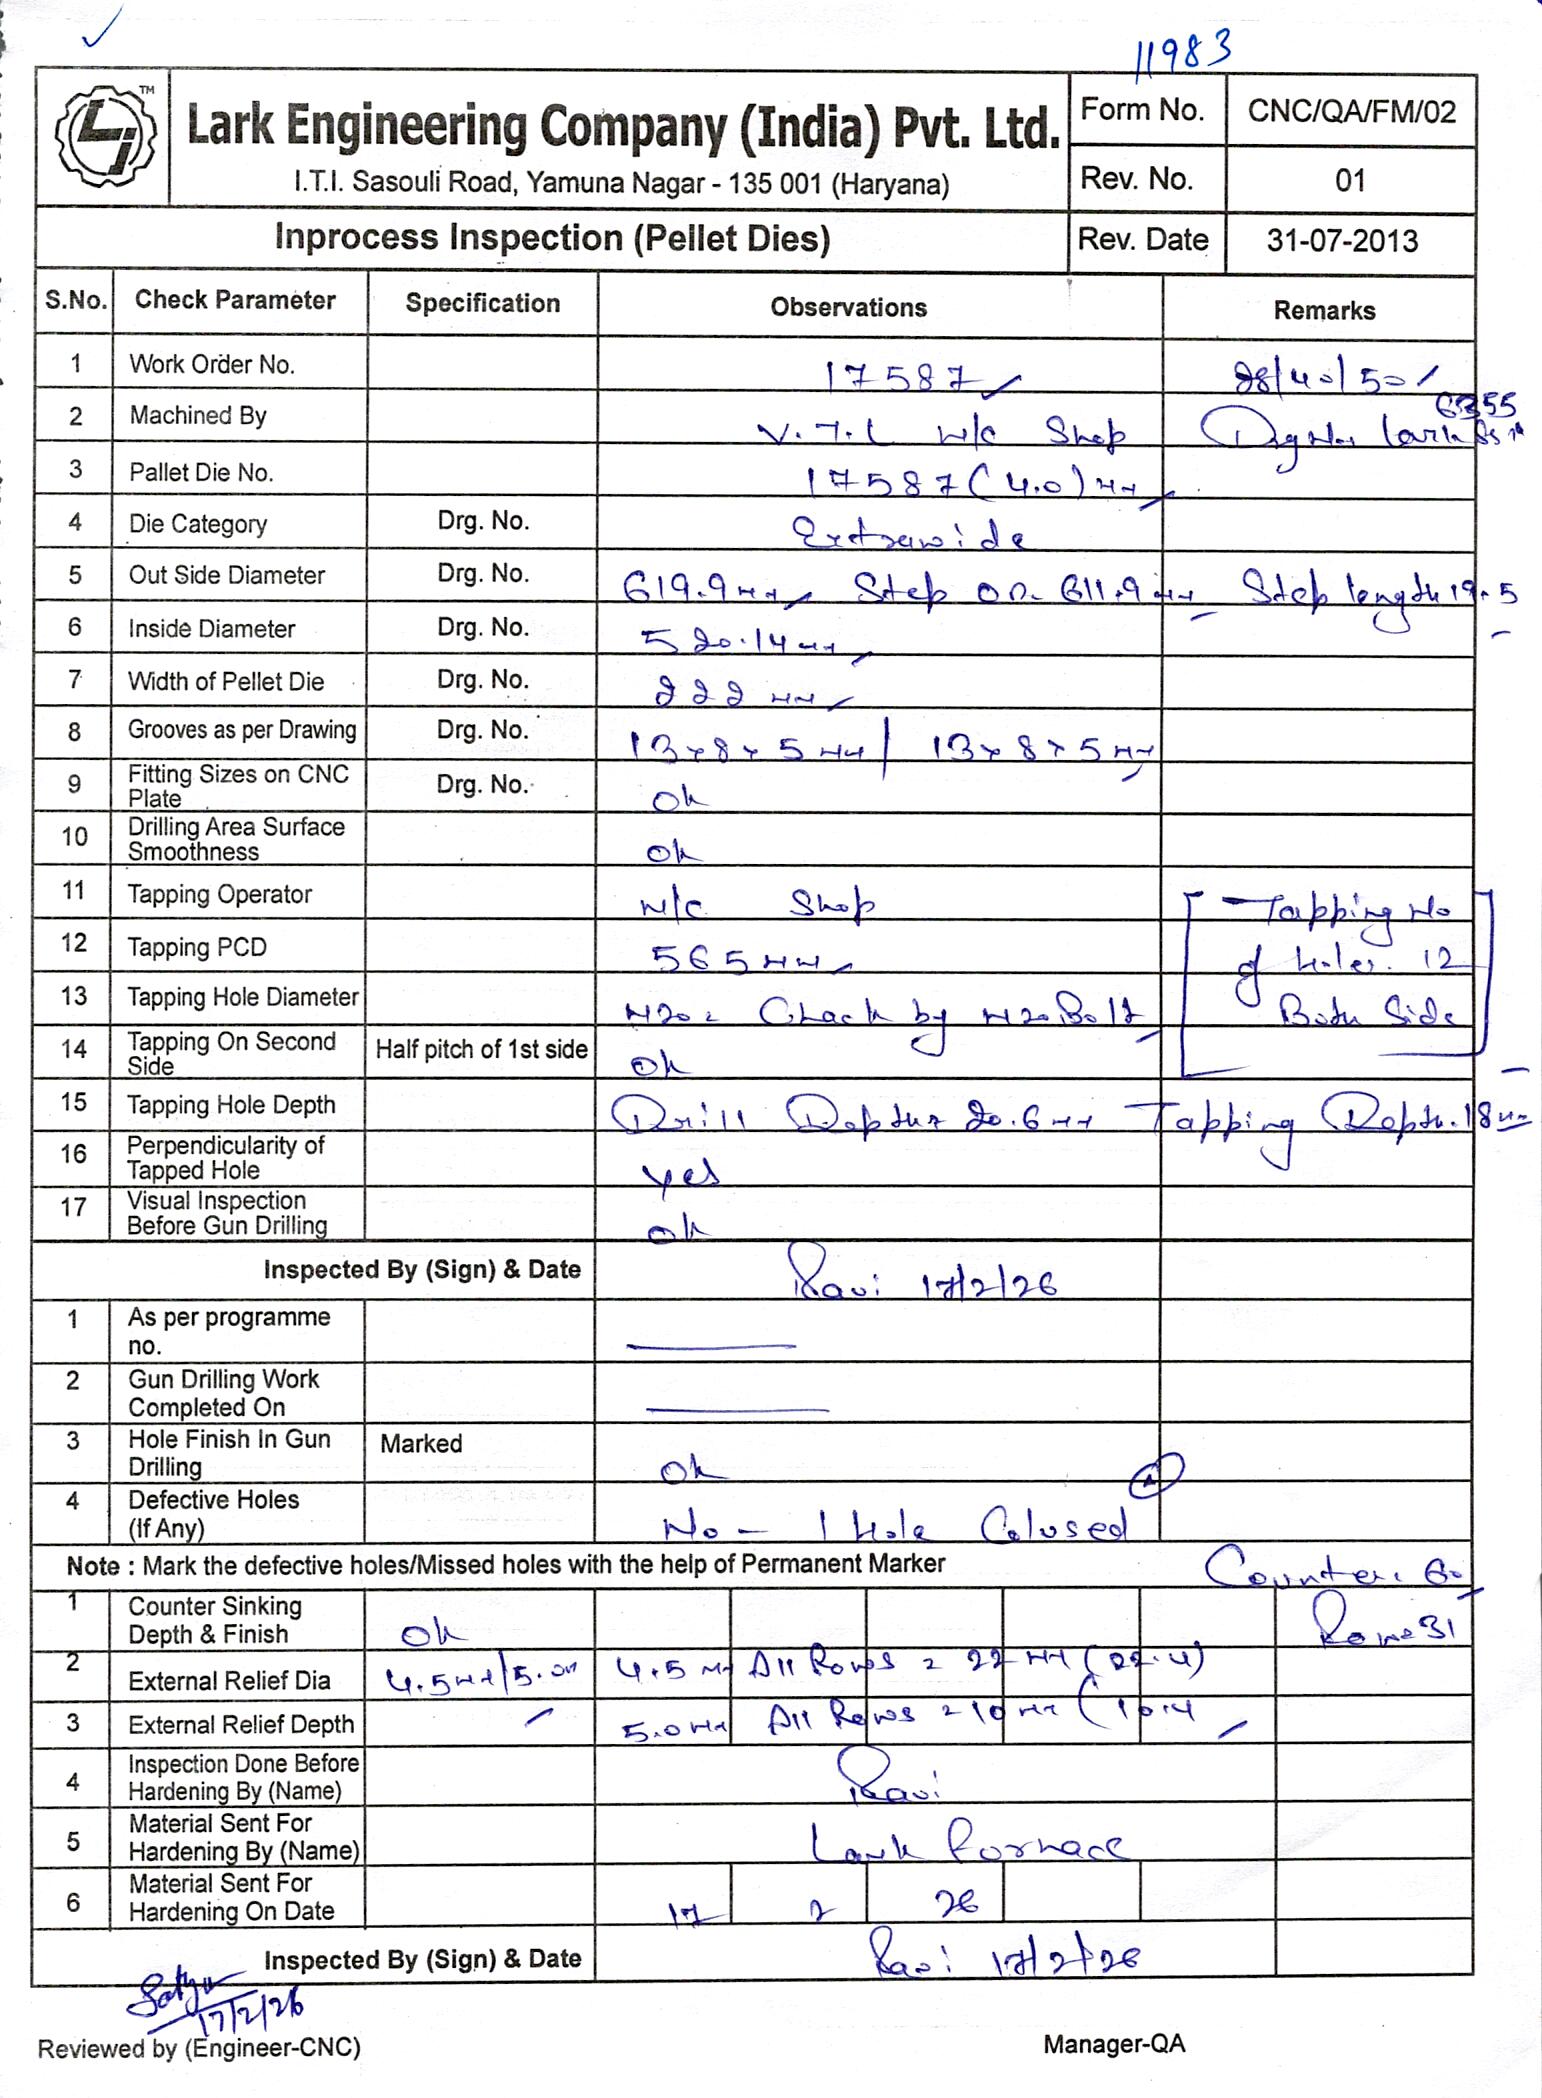 11983
TM
Lark Engineering Company (India) Pvt. Ltd.
I.T.I. Sasouli Road, Yamuna Nagar - 135 001 (Haryana)
Form No. CNC/QA/FM/02
Rev. No. 01
Inprocess Inspection (Pellet Dies) Rev. Date 31-07-2013
S.No. Check Parameter Specification Observations Remarks
1 Work Order No. 17587 28/40/50
2 Machined By V.T.L M/C Shop 6355
3 Pallet Die No. 17587 (4.0) MM
4 Die Category Drg. No. Extrawide
5 Out Side Diameter Drg. No. 619.9 MM Step OD- 611.9 MM Step length 19.5
6 Inside Diameter Drg. No. 520.14 MM
7 Width of Pellet Die Drg. No. 222 MM
8 Grooves as per Drawing Drg. No. 13x8x5 MM / 13x8x5 MM
9 Fitting Sizes on CNC Plate Drg. No. Ok
10 Drilling Area Surface Smoothness Ok
11 Tapping Operator M/C Shop Tapping No
12 Tapping PCD 565 MM of holes. 12
13 Tapping Hole Diameter M20 = Chack by M20 Bolt Both Side
14 Tapping On Second Side Half pitch of 1st side Ok
15 Tapping Hole Depth Drill Depth = 20.6 MM Tapping Depth. 18 MM
16 Perpendicularity of Tapped Hole Yes
17 Visual Inspection Before Gun Drilling Ok
Inspected By (Sign) & Date Ravi 17/2/26
1 As per programme no.
2 Gun Drilling Work Completed On
3 Hole Finish In Gun Drilling Marked Ok
4 Defective Holes (If Any) No - 1 Hole Colused
Note : Mark the defective holes/Missed holes with the help of Permanent Marker Counter. 60
1 Counter Sinking Depth & Finish Ok Row = 31
2 External Relief Dia 4.5 MM/5.0 4.5 MM All Rows = 22 MM (22.4)
3 External Relief Depth 5.0 MM All Rows = 10 MM (10.4
4 Inspection Done Before Hardening By (Name) Ravi
5 Material Sent For Hardening By (Name) Lark Fornace
6 Material Sent For Hardening On Date 17 2 26
Inspected By (Sign) & Date Ravi 17/2/26
Satya
17/2/26
Reviewed by (Engineer-CNC) Manager-QA